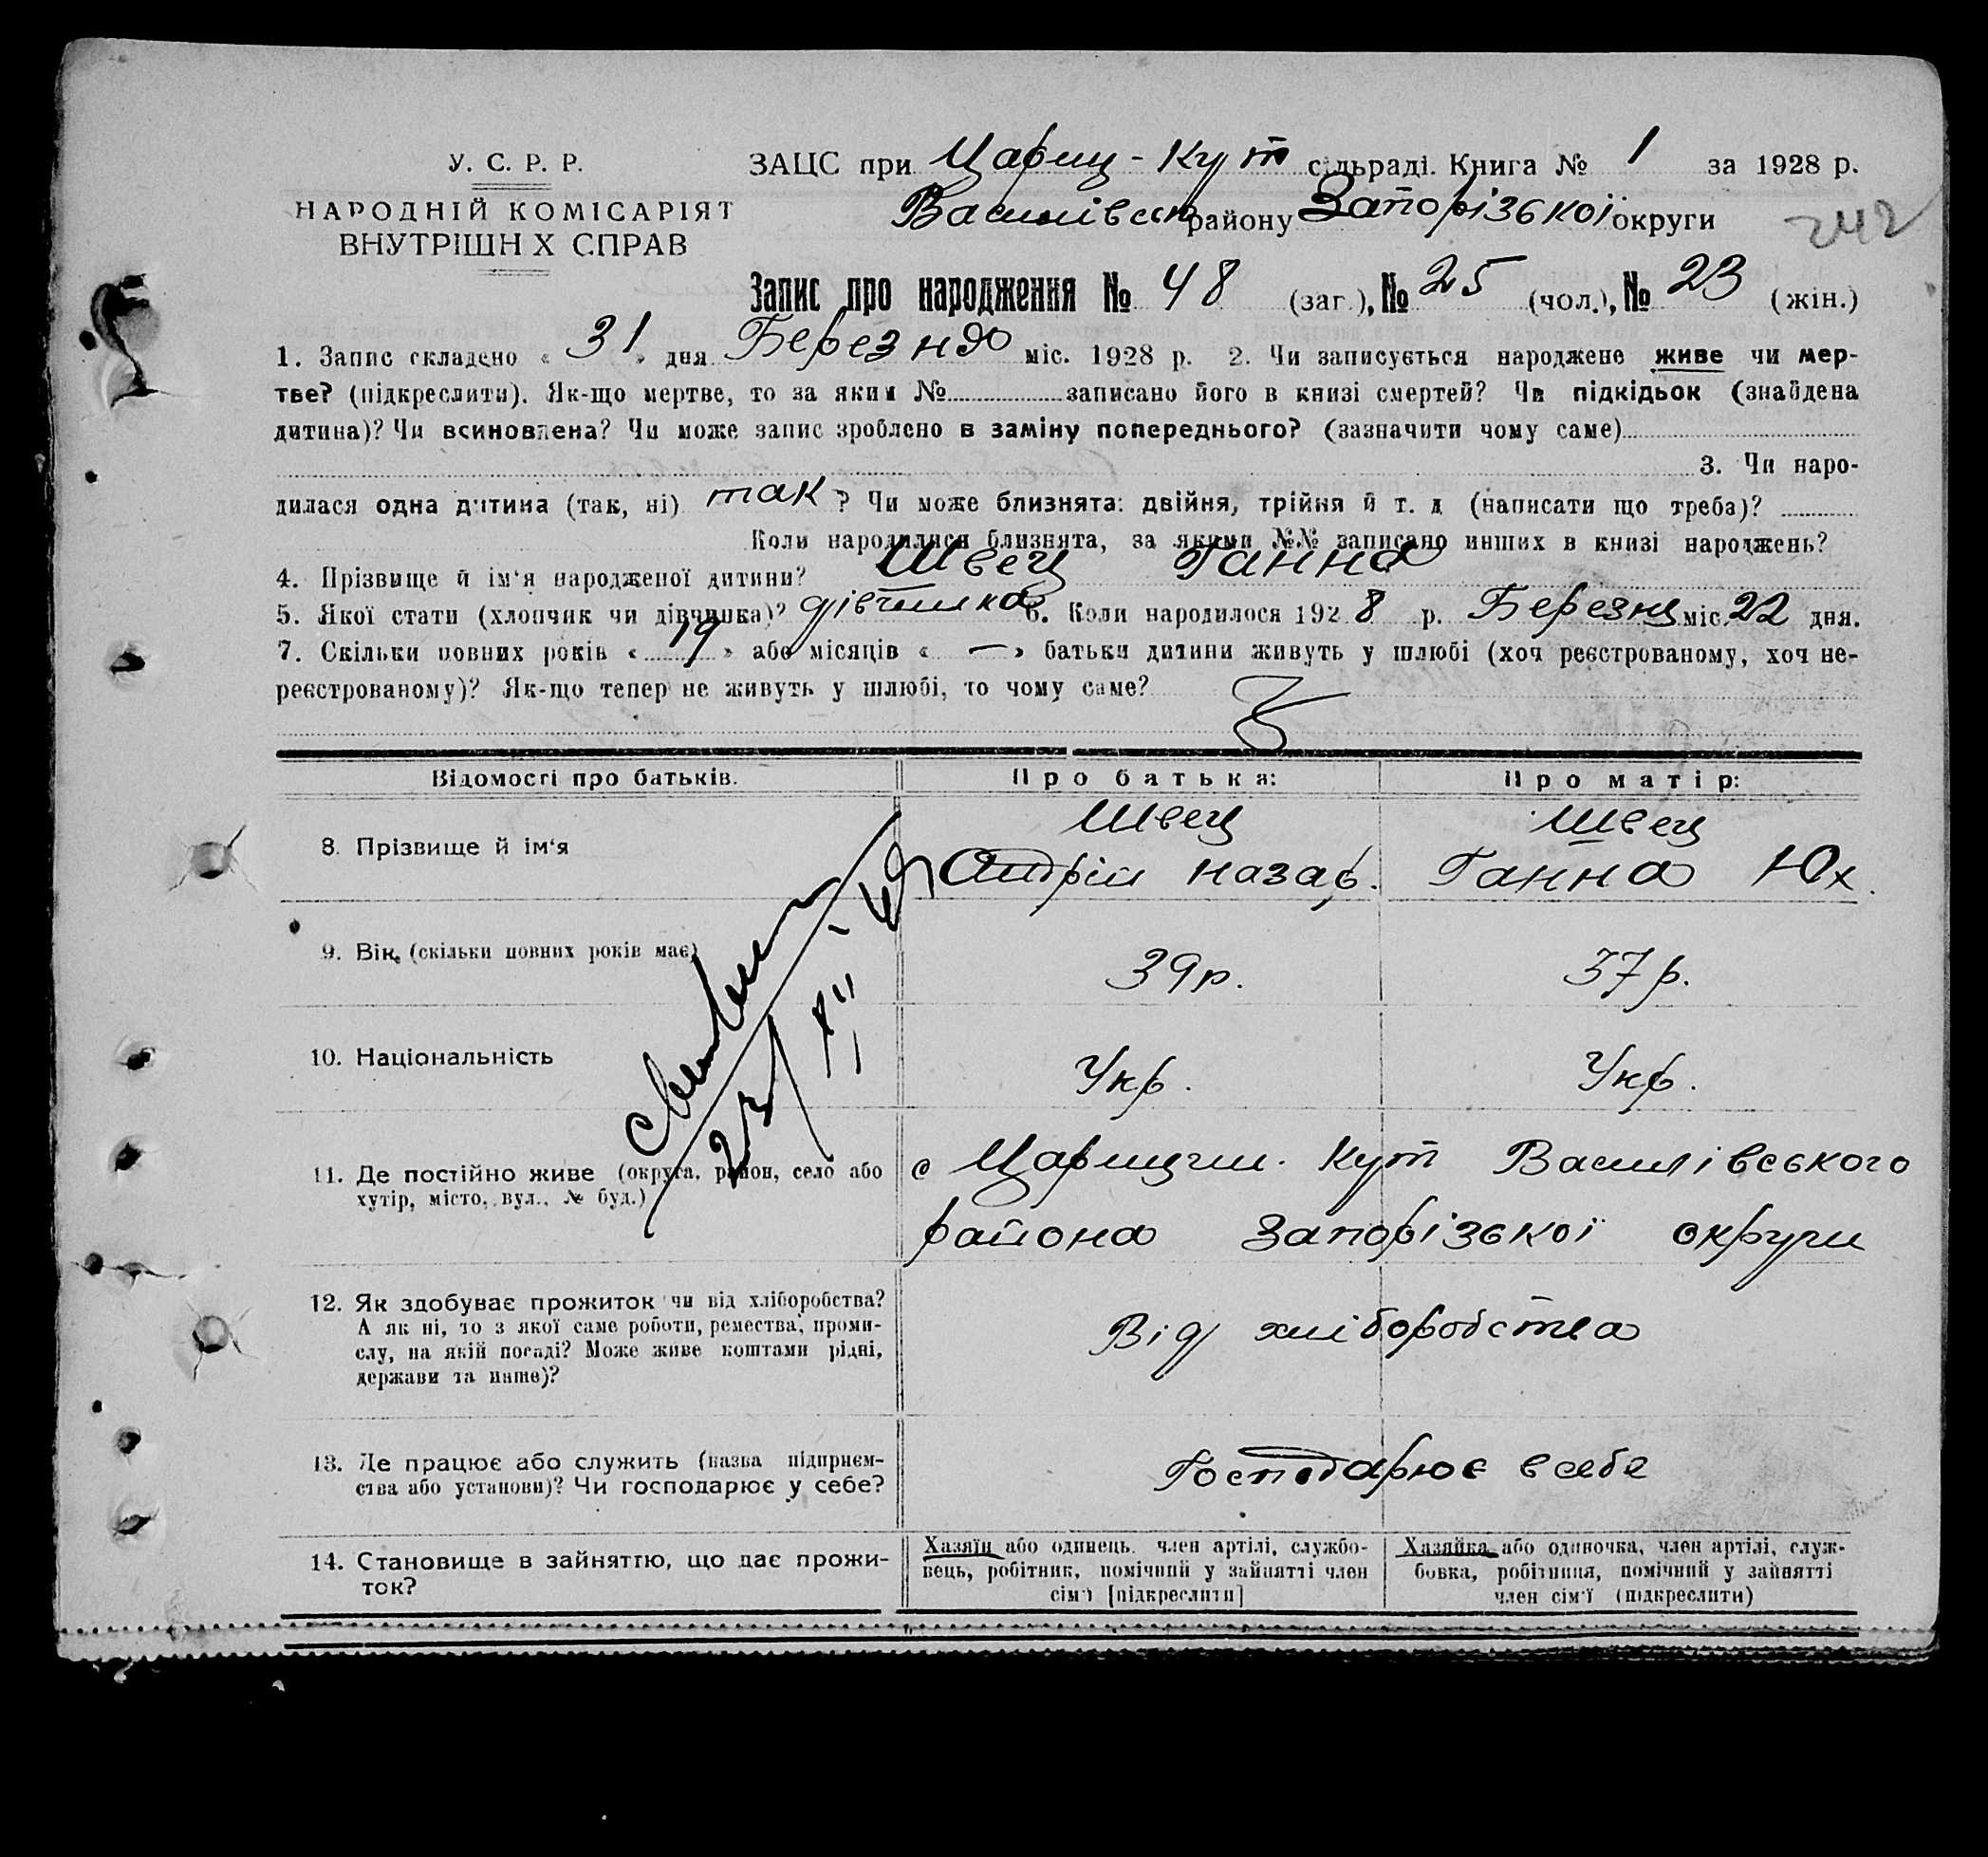 У. С. Р. Р.
НАРОДНІЙ КОМІСАРІЯТ
ВНУТРІШН Х СПРАВ
ЗАЦС при Цариц-Кут сільраді. Книга № 1 за 1928 р.
Василівськ району Запорізької округи
242
Запис про народження № 48 (заг.), № 25 (чол.), № 23 (жін.)
1. Запис складено « 31 » дня Березня міс. 1928 р. 2. Чи записується народжене живе чи мер-
тве? (підкреслити). Як-що мертве, то за яким № записано його в книзі смертей? Чи підкідьок (знайдена
дитина)? Чи всиновлена? Чи може запис зроблено в заміну попереднього? (зазначити чому саме)
3. Чи наро-
дилася одна дитина (так, ні) так ? Чи може близнята: двійня, трійня й т. д (написати що треба)?
Коли народилися близнята, за якими №№ записано инших в книзі народжень?
4. Прізвище й ім'я народженої дитини? Швец Ганна
5. Якої стати (хлопчик чи дівчинка)? дівчинка 6. Коли народилося 1928 р. Березня міс. 22 дня.
7. Скільки повних років « 19 » або місяців « — » батьки дитини живуть у шлюбі (хоч реєстрованому, хоч не-
реєстрованому)? Як-що тепер не живуть у шлюбі, то чому саме?
Відомості про батьків. Про батька: Про матір:
8. Прізвище й ім'я Швец Швец
Андрій Назар. Ганна Юх.
9. Вік (скільки повних років має) 39 р. 37 р.
10. Національність Укр. Укр.
23/XII-49
11. Де постійно живе (округа, район, село або
хутір, місто, вул., № буд.)
с Царицин. Кут Василівського
района Запорізької округи
12. Як здобуває прожиток чи від хліборобства?
А як ні, то з якої саме роботи, ремества, проми-
слу, на якій посаді? Може живе коштами рідні,
держави та инше)?
Від хліборобства
13. Де працює або служить (назва підприєм-
ства або установи)? Чи господарює у себе?
Господарює в себе
14. Становище в зайняттю, що дає прожи-
ток?
Хазяїн або одинець. член артілі, службо-
вець, робітник, помічний у зайнятті член
сім'ї [підкреслити]
Хазяйка або одиночка, член артілі, служ-
бовка, робітниця, помічний у зайнятті
член сім'ї (підкреслити)